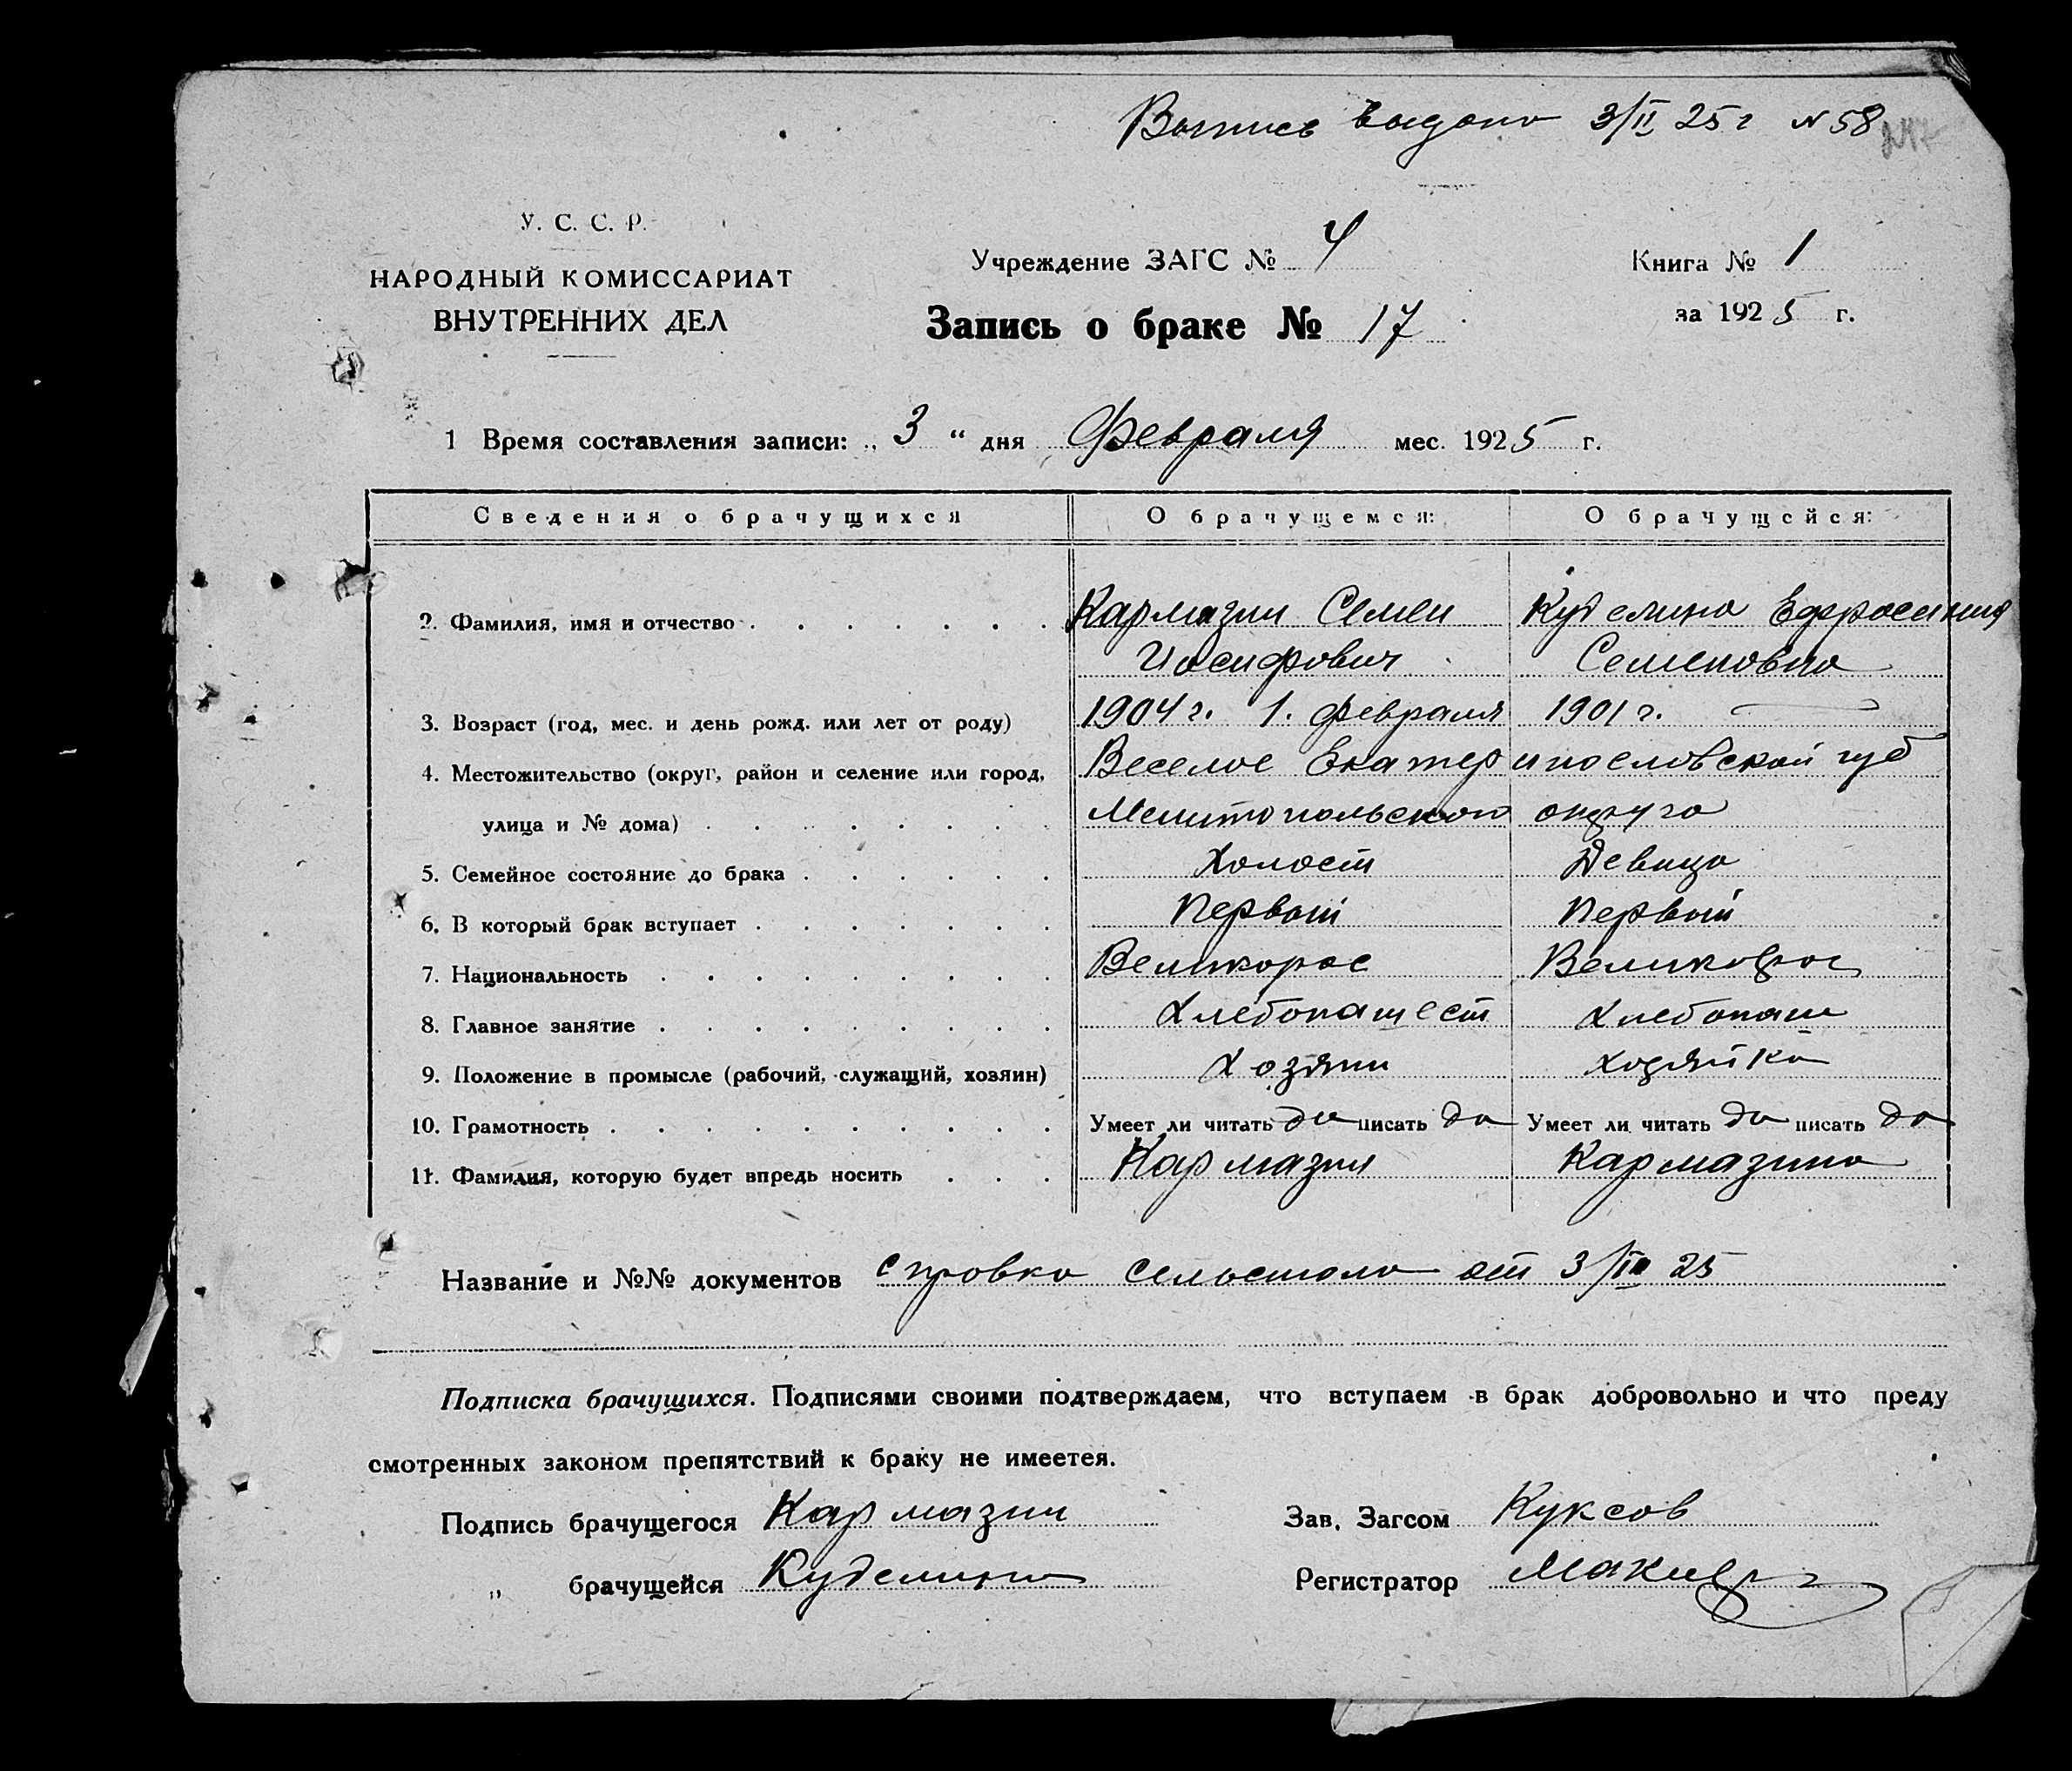 Выпись выдана 3/II 25 г № 58
У. С. С. Р.
НАРОДНЫЙ КОМИССАРИАТ
ВНУТРЕННИХ ДЕЛ
Учреждение ЗАГС № 4
Запись о браке № 17
Книга № 1
за 1925 г.
1 Время составления записи: „ 3 “ дня Февраля мес. 1925 г.
Сведения о брачущихся О брачущемся: О брачущейся:
2. Фамилия, имя и отчество Кармазин Семен Куделина Ефросиния
Иосифович Семеновна
3. Возраст (год, мес. и день рожд. или лет от роду) 1904 г. 1. февраля 1901 г. —
4. Местожительство (округ, район и селение или город, Веселое Екатеринославской губ
улица и № дома) Мелитопольского округа
5. Семейное состояние до брака Холост Девица
6. В который брак вступает Первый Первый
7. Национальность Великорос Великорос
8. Главное занятие Хлебопашест Хлебопаш
9. Положение в промысле (рабочий, служащий, хозяин) Хозяин Хозяйка
10. Грамотность Умеет ли читать да писать да Умеет ли читать да писать да
11. Фамилия, которую будет впредь носить Кармазин Кармазина
Название и №№ документов справка сельстола от 3/II 25
Подписка брачущихся. Подписями своими подтверждаем, что вступаем в брак добровольно и что преду
смотренных законом препятствий к браку не имеетея.
Подпись брачущегося Кармазин Зав. Загсом Куксов
„ брачущейся Куделина Регистратор